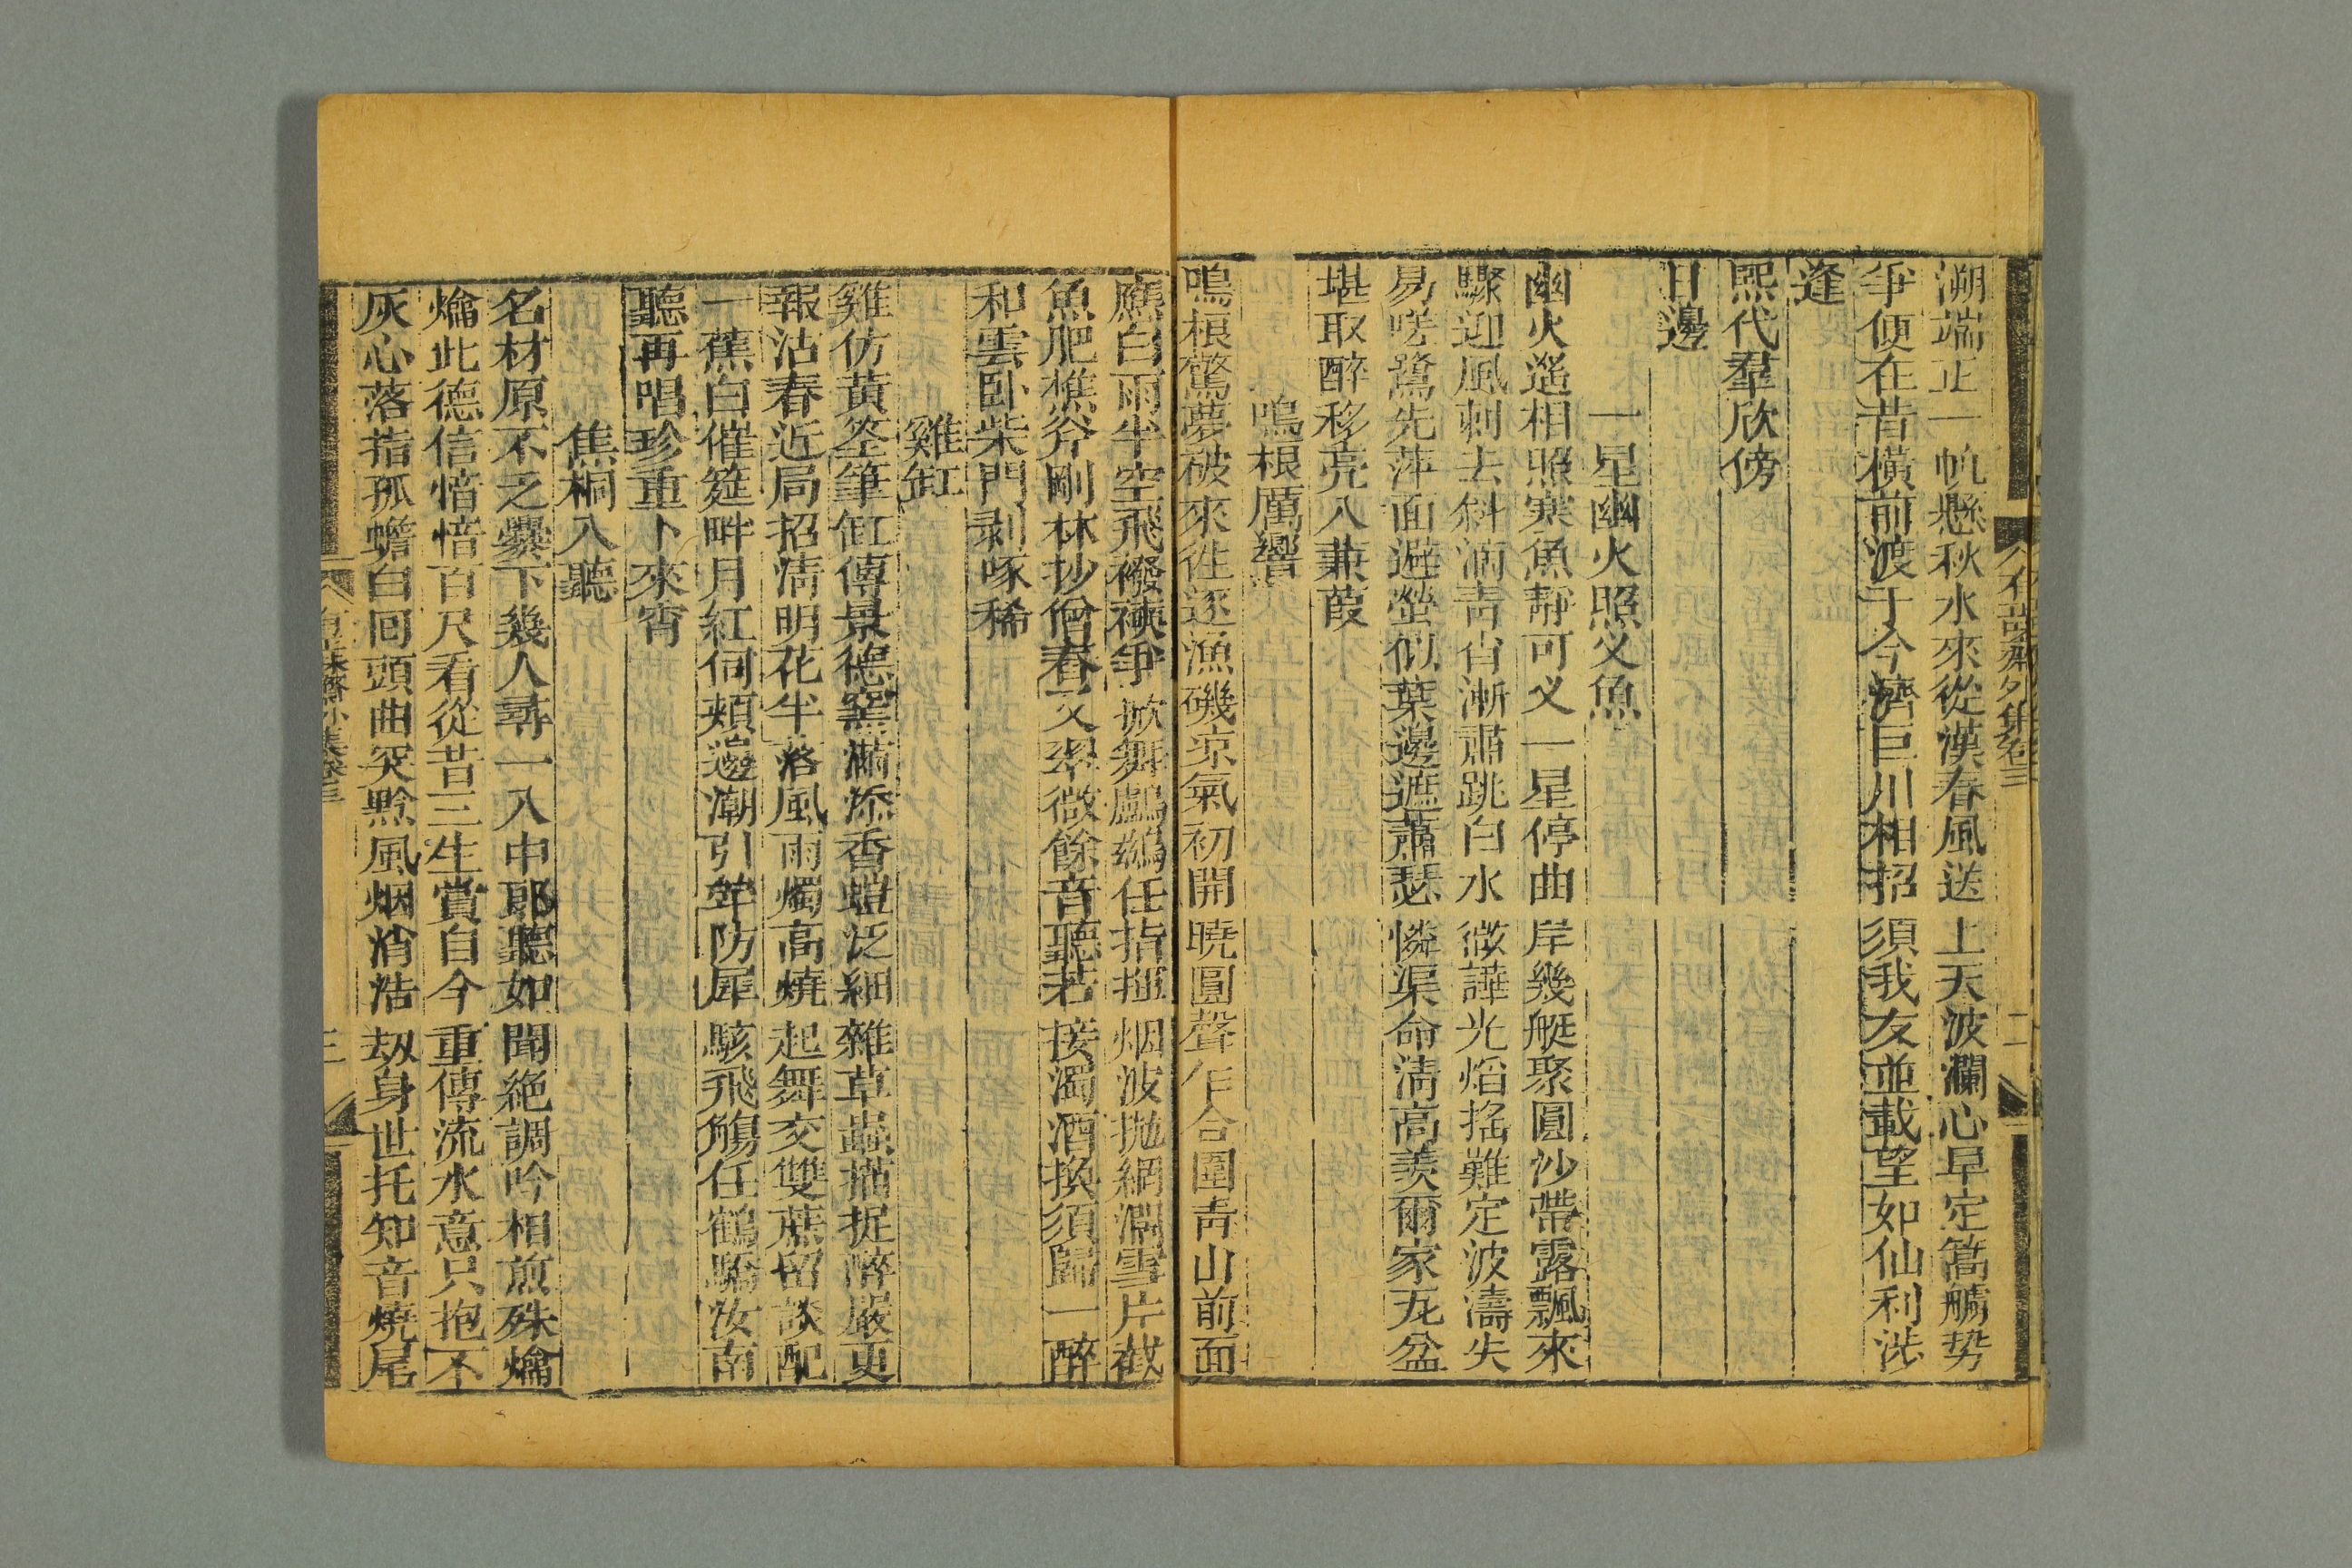 溯端正一帆懸秋水來從漢春風送上天波瀾心早定篙艣势
爭便在昔橫前渡于今濟巨川相招須我友並載望如仙利涉
逢
熙代羣欣傍
日邊
一星幽火照义魚
幽火遥相照寒魚靜可义一星停曲岸幾艇聚圓沙帶露飄來
驟迎風刺去斜滴青省漸肅跳白水微譁光焰搖難定波濤失
易嗟鷺先萍面避螢似葉邊遮蕭瑟憐渠命淸高羨爾家瓦盆
堪取醉移亮入蒹葭
鳴根厲響
鳴根驚夢破來徃逐漁磯凉氣初開曉圓聲乍合圍靑山前面
應白雨半空飛襏襫爭掀舞鸕鷀任指揮烟波抛網濶雪片截
魚肥樵斧剛林抄僧舂又翠微餘音聽若接濁酒換須歸一醉
和雲卧柴門剥啄稀
雞缸
雞仿黃筌筆缸傳景德窰滿添香螘泛細雜草蟲描捉醉嚴更
報沽春近局招淸明花半落風雨燭高燒起舞交雙蔗留談配
一蕉白催筵畔月紅伺頰邊潮引滿防犀駭飛觴任鶴驕汝南
聽再唱珍重卜來宵
焦桐入聽
名材原不乏爨下幾人尋一入中郎聽如聞絶調吟相煎殊爚
爚此德信愔愔百尺看從昔三生賞自今重傳流水意只抱不
灰心落指孤蟾白回頭曲突黔風烟消浩刼身世托知音燒尾
外集卷三
二
三